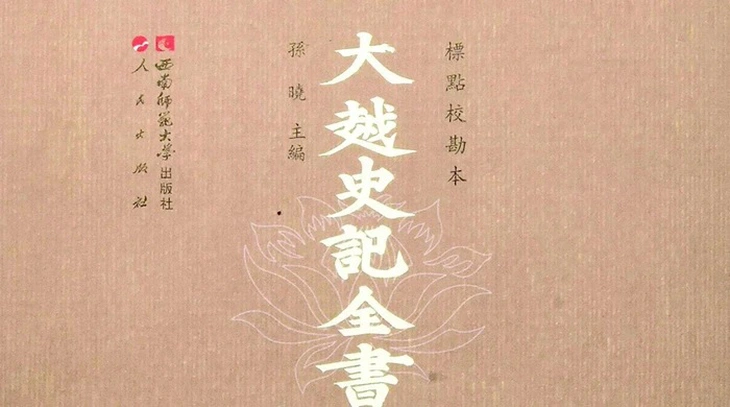 標點校勘本
大越史記全書
孫曉 主編
西南師範大学出版社
人民出版社